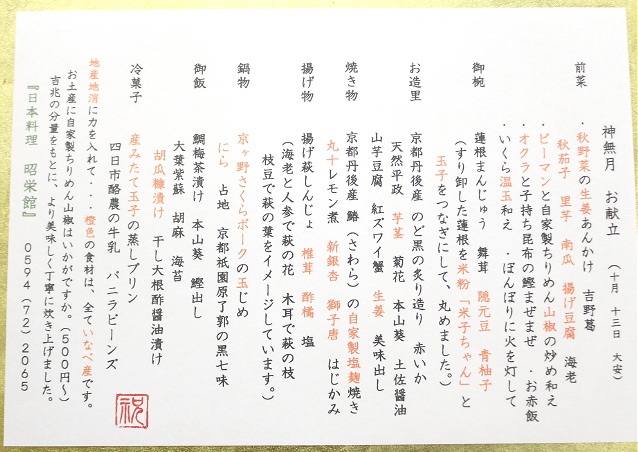 神無月 お献立 （十月 十三日 大安）
前菜 ・秋野菜の生姜あんかけ 吉野葛
秋茄子 里芋 南瓜 揚げ豆腐 海老
・ピーマンと自家製ちりめん山椒の炒め和え
・オクラと子持ち昆布の鰹まぜまぜ ・お赤飯
・いくら温玉和え ・ぼんぼりに火を灯して
御椀 蓮根まんじゅう 舞茸 隠元豆 青柚子
（すり卸した蓮根を米粉「米子ちゃん」と
玉子をつなぎにして、丸めました。）
お造里 京都丹後産 のど黒の炙り造り 赤いか
天然平政 芋茎 菊花 本山葵 土佐醤油
山芋豆腐 紅ズワイ蟹 生姜 美味出し
焼き物 京都丹後産 鰆（さわら）の自家製塩麹焼き
丸十レモン煮 新銀杏 獅子唐 はじかみ
揚げ物 揚げ萩しんじょ 椎茸 酢橘 塩
（海老と人参で萩の花 木耳で萩の枝
枝豆で萩の葉をイメージしています。）
鍋物 京ヶ野さくらポークの玉じめ
にら 占地 京都祇園原了郭の黒七味
御飯 鯛梅茶漬け 本山葵 鰹出し
大葉紫蘇 胡麻 海苔
胡瓜糠漬け 干し大根酢醤油漬け
冷菓子 産みたて玉子の蒸しプリン
四日市酪農の牛乳 バニラビーンズ
地産地消に力を入れて・・・橙色の食材は、全ていなべ産です。
お土産に自家製ちりめん山椒はいかがですか。（500円～）
吉兆の分量をもとに、より美味しく丁寧に炊き上げました。
『日本料理 昭栄館』 0594（72）2065
祝